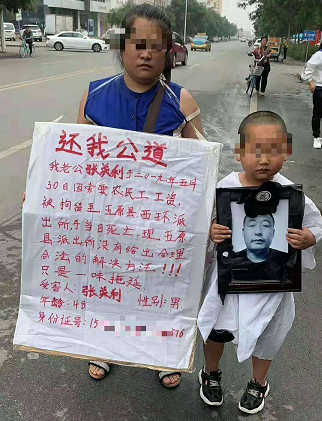 还我公道
我老公张美利于二〇一九年五月
30日因索要农民工工资,
被拘留至五原县西环派
出所于当日死亡,现五原
县派出所没有给出合理
合法的解决方法!!!
只是一味拖延
受害人:张美利
年龄:48 性别:男
身份证号:15 676